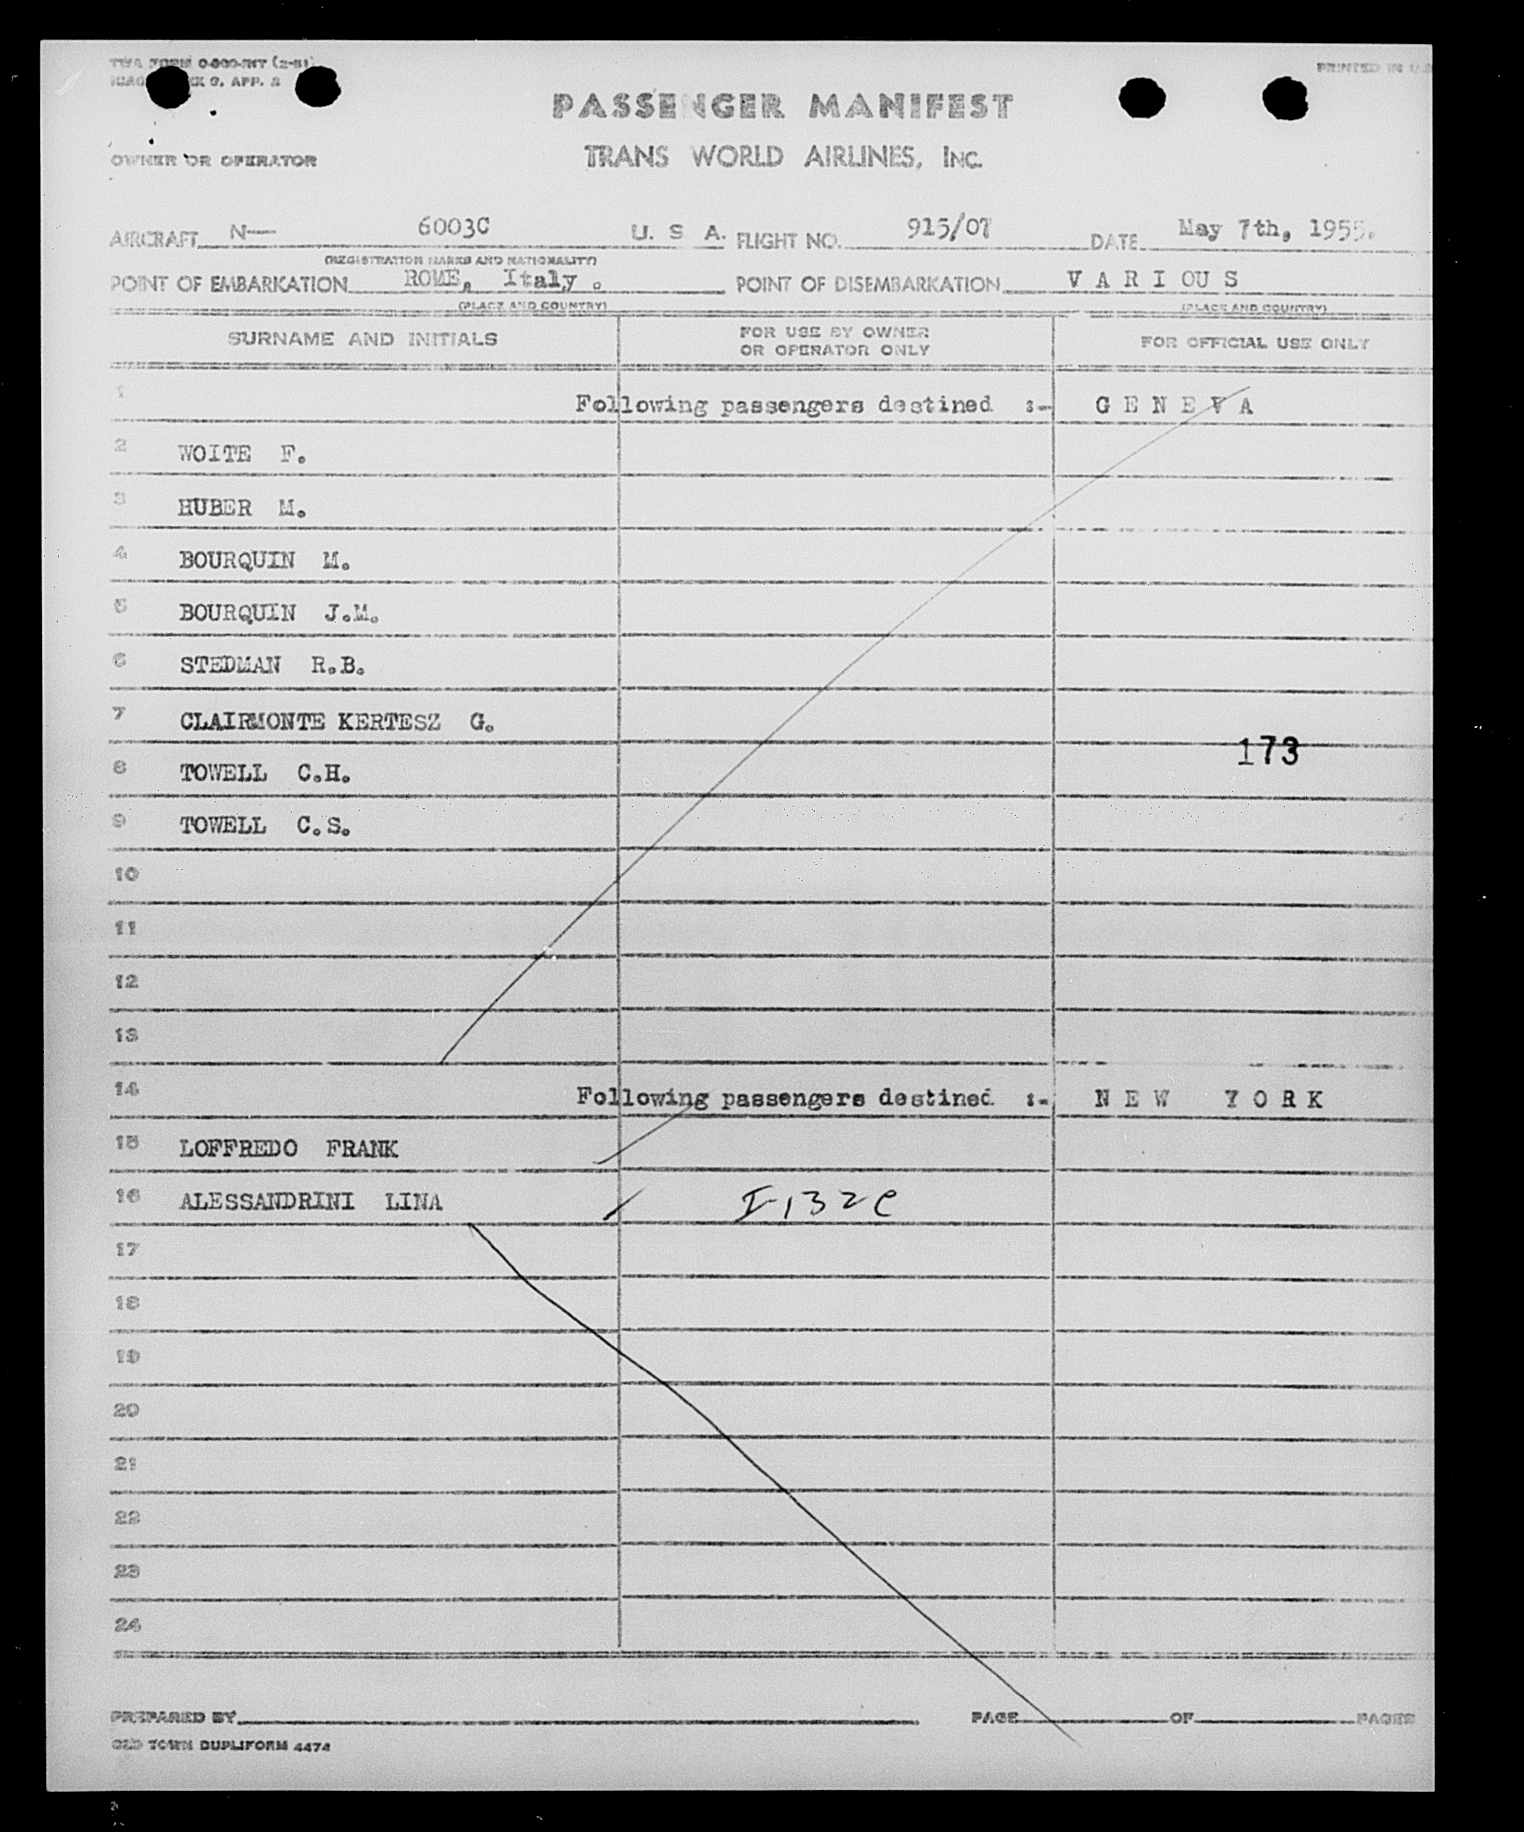 TWA FORM O-800-INT (2-51)
ICAO ANNEX 9, APP. 2
PRINTED IN U.S.
PASSENGER MANIFEST
OWNER OR OPERATOR
TRANS WORLD AIRLINES, INC.
AIRCRAFT N— 6003C U. S A. FLIGHT NO. 915/07 DATE May 7th, 1955.
(REGISTRATION MARKS AND NATIONALITY)
POINT OF EMBARKATION ROME, Italy . POINT OF DISEMBARKATION V A R I OU S
(PLACE AND COUNTRY) (PLACE AND COUNTRY)
SURNAME AND INITIALS FOR USE BY OWNER OR OPERATOR ONLY FOR OFFICIAL USE ONLY
1 Following passengers destined :- G E N E V A
2 WOITE F.
3 HUBER M.
4 BOURQUIN M.
5 BOURQUIN J.M.
6 STEDMAN R.B.
7 CLAIRMONTE KERTESZ G.
173
8 TOWELL C.H.
9 TOWELL C.S.
10
11
12
13
14 Following passengers destined :- N E W Y O R K
15 LOFFREDO FRANK
16 ALESSANDRINI LINA I-132e
17
18
19
20
21
22
23
24
PREPARED BY PAGE OF PAGES
OLD TOWN DUPLIFORM 4474